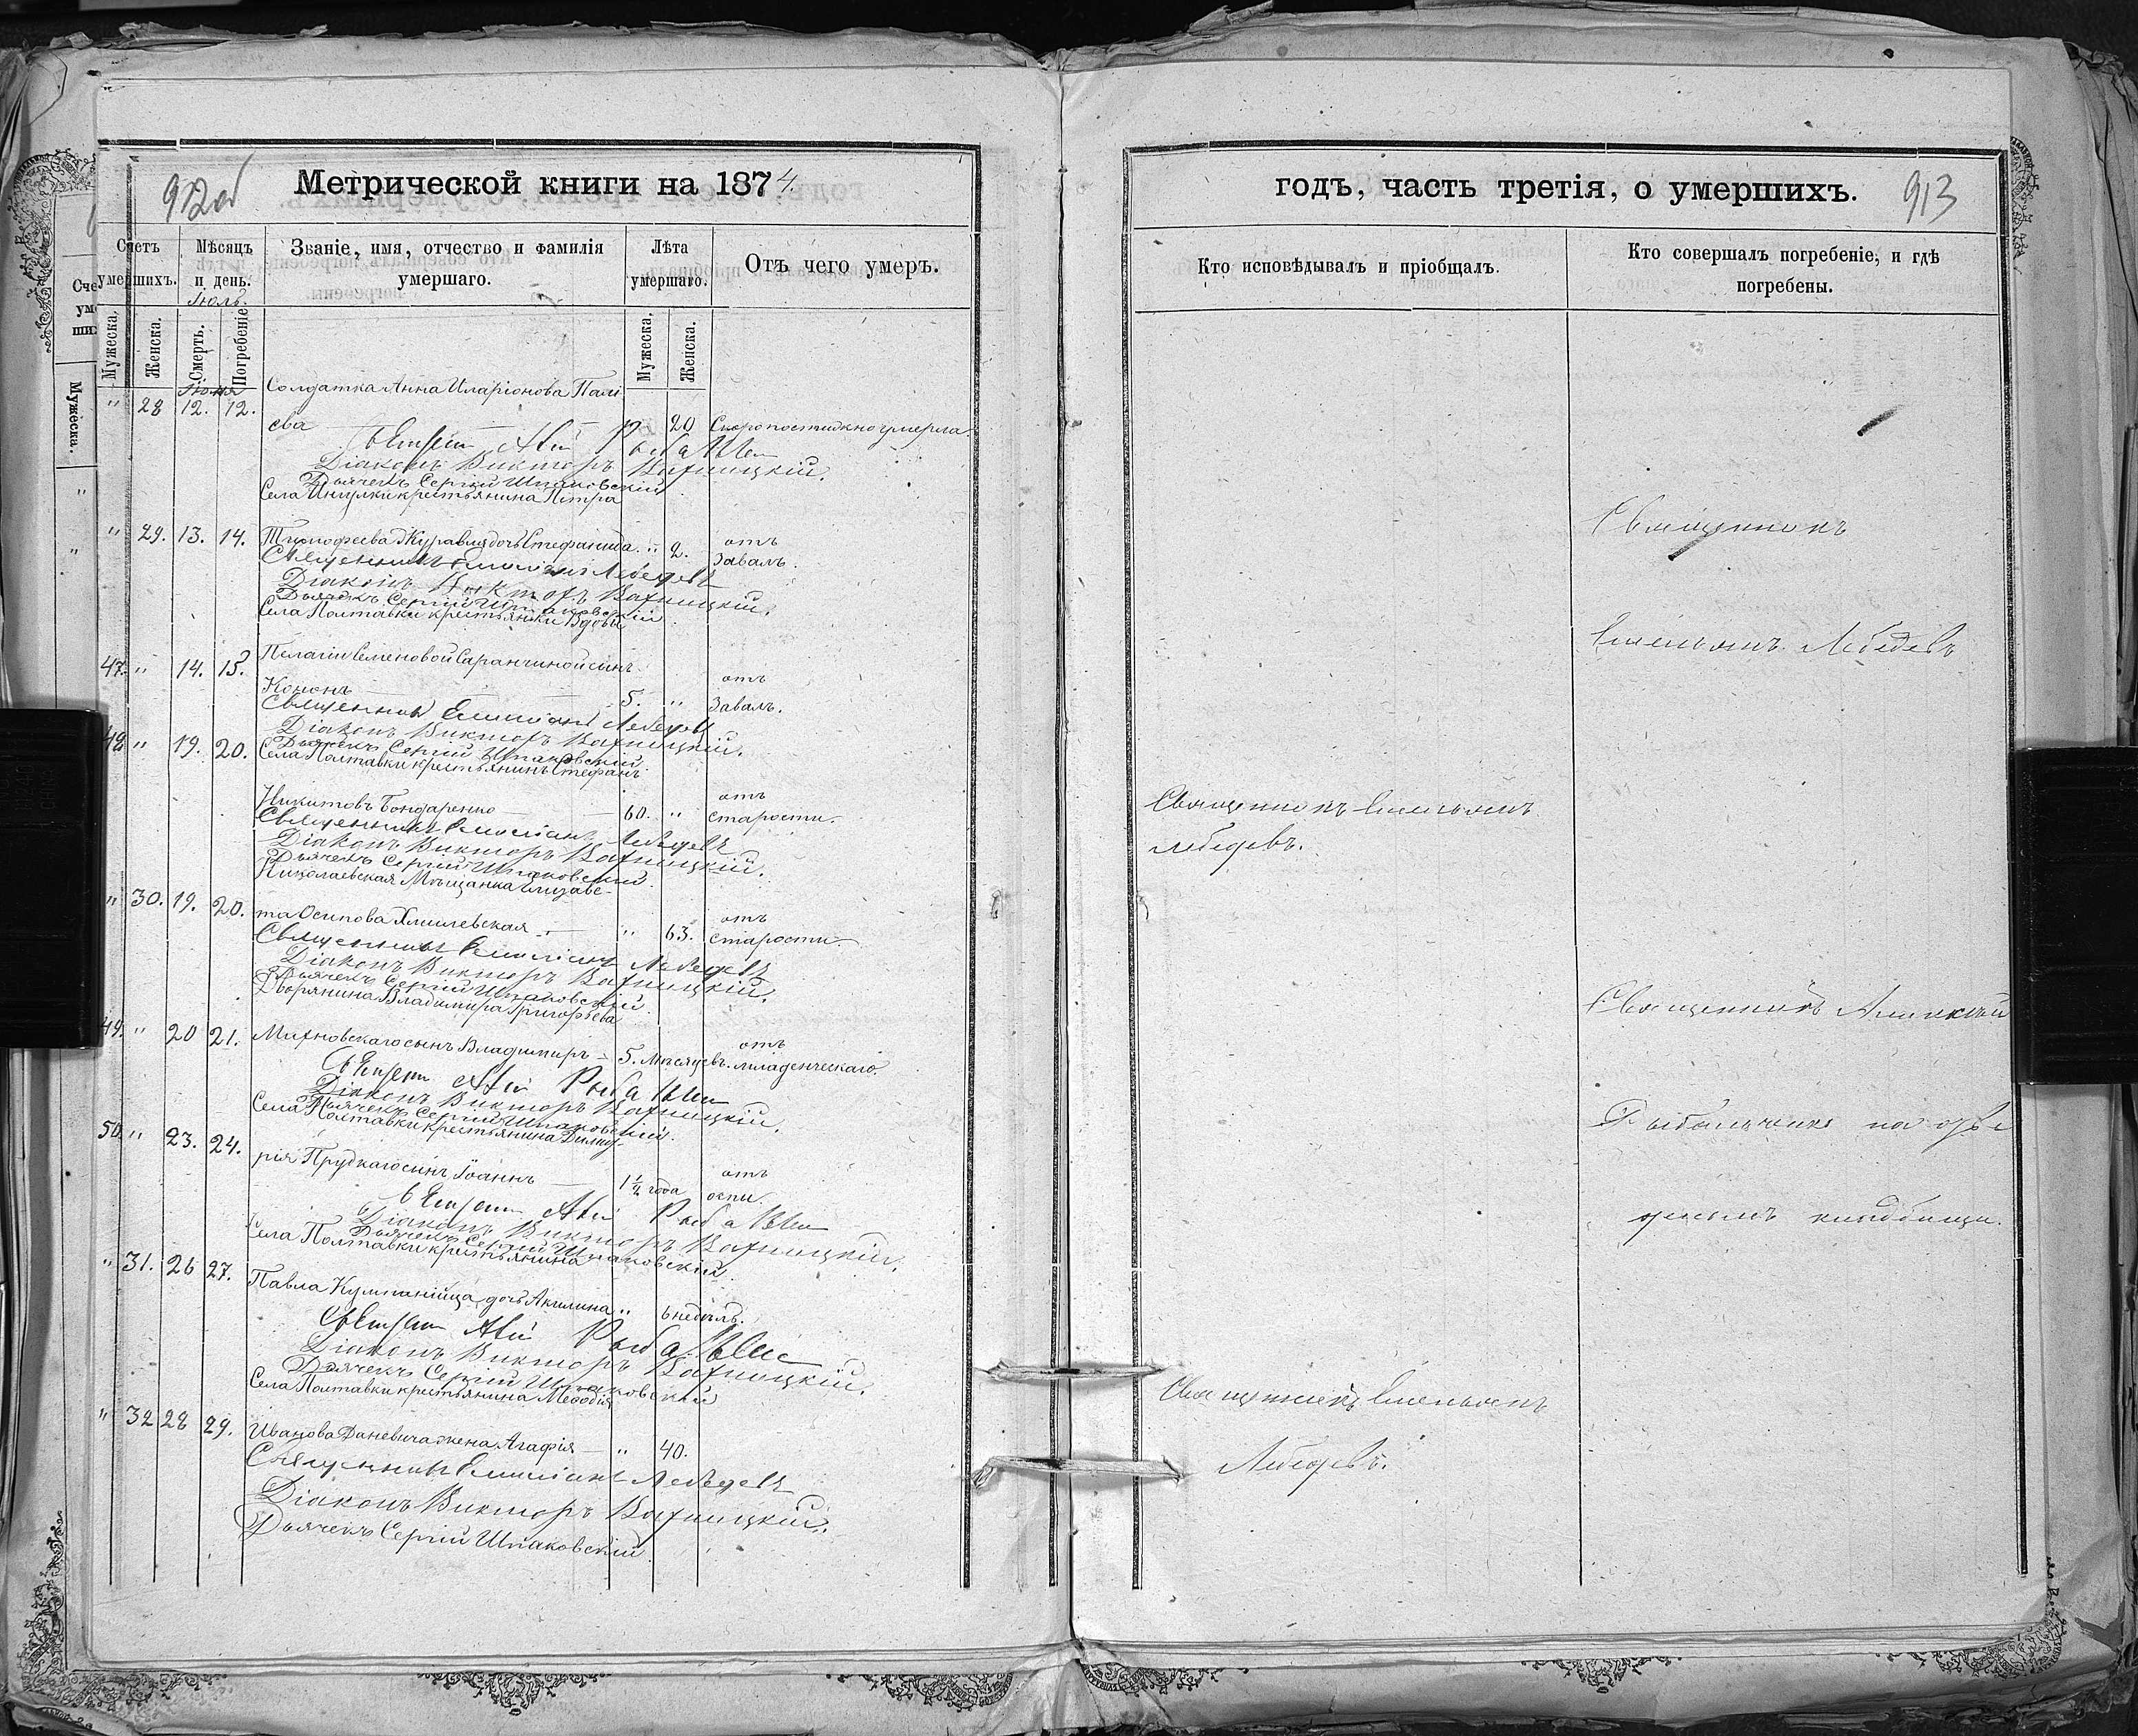 912об
Метрической книги на 1874.
Счетъ умершихъ.
Мѣсяцъ и день.
Званіе, имя, отчество и фамилія умершаго.
Лѣта умершаго.
Отъ чего умеръ.
Іюль.
Мужеска.
Женска.
Смерть.
Погребеніе
Мужеска.
Женска.
Іюня
" 28 12. 12. Солдатка Анна Иларіонова Палі
ева 20 Скоропостижно умерла.
Діаконъ Викторъ
Дьячекъ Сергій Шпаковскій
Села крестьянина Петра
" 29. 13. 14. Тимофеева Журавля дочь Стефанида. " 2. отъ
Завалъ.
Священникъ Емиліанъ Лебедевъ
Діаконъ Викторъ
Дьячекъ Сергій Шпаковскій
Села Полтавки крестьянки Вдовы
47. " 14. 15. Пелагіи Семеновой Саранчиной сынъ
Кононъ 5. " отъ
Завалъ.
Священникъ Емиліанъ Лебедевъ
Діаконъ Викторъ
Дьячекъ Сергій Шпаковскій.
48 " 19. 20. Села Полтавки крестьянинъ Стефанъ
Никитовъ Бондаренко 60. " отъ
старости.
Священникъ Емиліанъ Лебедевъ
Діаконъ Викторъ
Дьячекъ Сергій Шпаковскій.
Николаевская Мѣщанка Елизаве-
" 30. 19. 20. та Осипова Хмилевская " 63. отъ
старости.
Священникъ Емиліанъ Лебедевъ
Діаконъ Викторъ
Дьячекъ Сергій Шпаковскій.
Дворянина Владимира Григорьева
49. " 20 21. Михновскаго сынъ Владимиръ 5. Мѣсяцевъ. отъ
младенческаго.
Діаконъ Викторъ
Дьячекъ Сергій Шпаковскій.
Села Полтавки крестьянина Димит-
50. " 23. 24. рія Прудкаго сынъ Іоаннъ 1 1/2 года отъ
оспы.
Діаконъ Викторъ
Дьячекъ Сергій Шпаковскій.
Села Полтавки крестьянина
" 31. 26 27. Павла дочь Акилина " 6 недѣль.
Діаконъ Викторъ
Дьячекъ Сергій Шпаковскій
Села Полтавки крестьянина Меѳодія
" 32 28 29. Иванова Даневича жена Агафія " 40.
Священникъ Емиліанъ Лебедевъ
Діаконъ Викторъ
Дьячекъ Сергій Шпаковскій.
годъ, часть третія, о умершихъ.
913
Кто исповѣдывалъ и пріобщалъ.
Кто совершалъ погребеніе, и гдѣ погребены.
Священникъ
Емельянъ Лебедевъ
Священникъ Емельянъ
Лебедевъ.
Священникъ Алексій
Рыбальченко на
кладбищи.
Священникъ Емельянъ
Лебедевъ.
Сче
ум
ши
Мужеска.